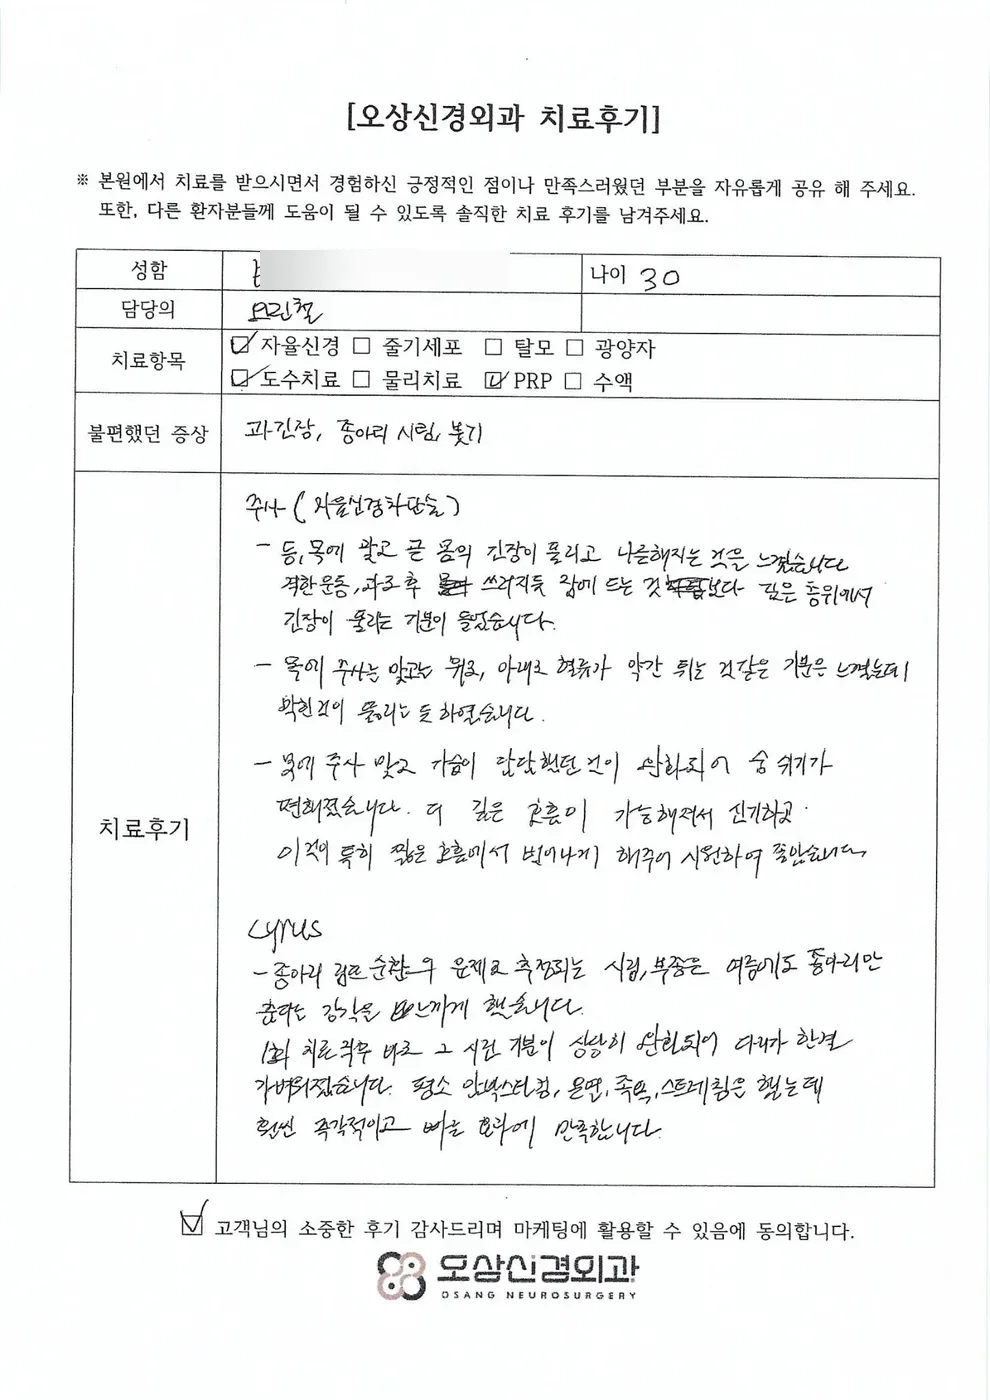 [오상신경외과 치료후기]
※ 본원에서 치료를 받으시면서 경험하신 긍정적인 점이나 만족스러웠던 부분을 자유롭게 공유 해 주세요.
또한, 다른 환자분들께 도움이 될 수 있도록 솔직한 치료 후기를 남겨주세요.
성함 나이 30
담당의 오민철
치료항목 ☑ 자율신경 ☐ 줄기세포 ☐ 탈모 ☐ 광양자
☑ 도수치료 ☐ 물리치료 ☑ PRP ☐ 수액
불편했던 증상 과긴장, 종아리 시림, 붓기
치료후기
주사 (자율신경차단술)
- 등, 목에 맞고 곧 몸의 긴장이 풀리고 나른해지는 것을 느꼈습니다
격한 운동, 과로 후 쓰러지듯 잠에 드는 것 보다 깊은 층위에서
긴장이 풀리는 기분이 들었습니다.
- 목에 주사는 맞고는 위로, 아래로 혈류가 약간 튀는 것 같은 기분은 느꼈는데
막힌 것이 풀리는 듯 하였습니다.
- 목에 주사 맞고 가슴이 답답했던 것이 완화되어 숨 쉬기가
편해졌습니다. 더 깊은 호흡이 가능해져서 신기하고
이것이 특히 짧은 호흡에서 벗어나게 해주어 시원하여 좋았습니다.
Cyrus
- 종아리 림프 순환의 문제로 추정되는 시림, 부종은 여름에도 종아리만
춥다는 감각을 느끼게 했습니다.
1회 치료 직후 바로 그 시린 기분이 상당히 완화되어 다리가 한결
가벼워졌습니다. 평소 압박스타킹, 온열, 족욕, 스트레칭은 했는데
훨씬 즉각적이고 빠른 효과에 만족합니다.
☑ 고객님의 소중한 후기 감사드리며 마케팅에 활용할 수 있음에 동의합니다.
오상신경외과
OSANG NEUROSURGERY